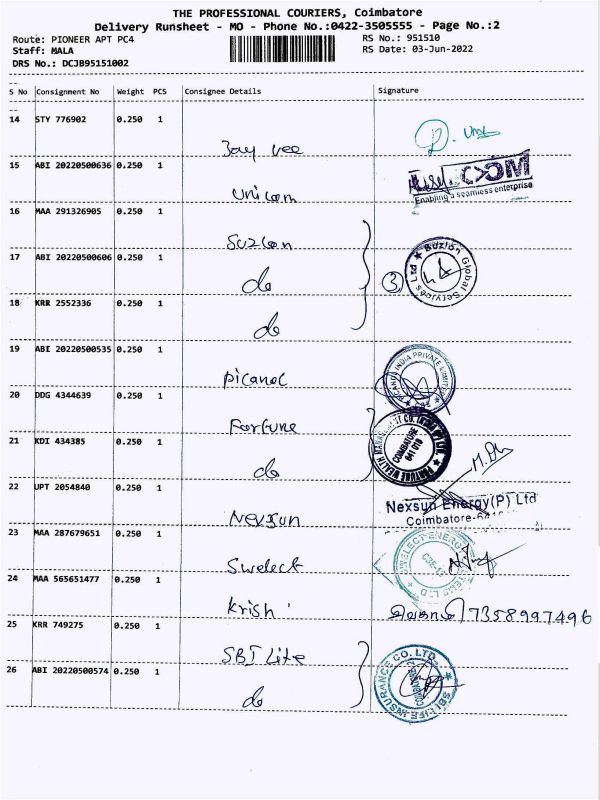 THE PROFESSIONAL COURIERS, Coimbatore
Delivery Runsheet - MO - Phone No.:0422-3505555 - Page No.:2
Route: PIONEER APT PC4 RS No.: 951510
Staff: MALA RS Date: 03-Jun-2022
DRS No.: DCJB95151002
S No Consignment No Weight PCS Consignee Details Signature
14 STY 776902 0.250 1
Jay Vee
15 ABI 20220500636 0.250 1
Unicom COM
Enabling a seamless enterprise
16 MAA 291326905 0.250 1
Suzlon
17 ABI 20220500606 0.250 1
do 3 Suzlon Global Services Ltd
18 KRR 2552336 0.250 1
do
19 ABI 20220500535 0.250 1
Picanol PICANOL INDIA PRIVATE LIMITED
20 DDG 4344639 0.250 1
Fortune
21 KDI 434385 0.250 1
do COIMBATORE 641 018
22 UPT 2054840 0.250 1
Nexsun Nexsun Energy(P) Ltd
Coimbatore-641
23 MAA 287679651 0.250 1
Swelect
24 MAA 565651477 0.250 1
Krish 7358997496
25 KRR 749275 0.250 1
SBI Life
26 ABI 20220500574 0.250 1
do SBI LIFE INSURANCE CO. LTD.